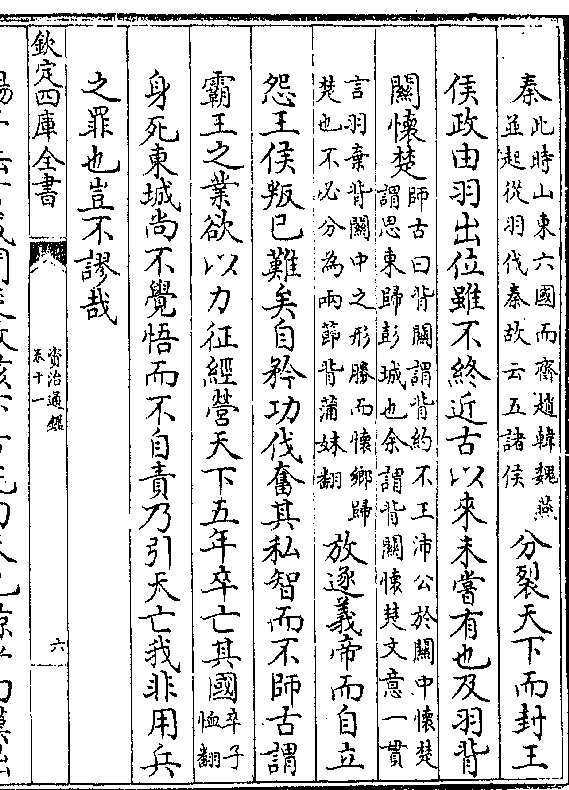 秦
此時山東六國而齊趙韓魏燕
並起從羽伐秦故云五諸侯
分裂天下而封王
侯政由羽出位雖不終近古以來未嘗有也及羽背
關懷楚
師古曰背關謂背約不王沛公於關中懷楚
謂思東歸彭城也余謂背關懷楚文意一貫
言羽棄背關中之形勝而懷鄉歸
楚也不必分為兩節背蒲妹翻
放逐義帝而自立
怨王侯叛已難矣自矜功伐奮其私智而不師古謂
霸王之業欲以力征經營天下五年卒亡其國
卒子
恤翻
身死東城尚不覺悟而不自責乃引天亡我非用兵
之罪也豈不謬哉
欽定四庫全書
資治通鑑
卷十一
六